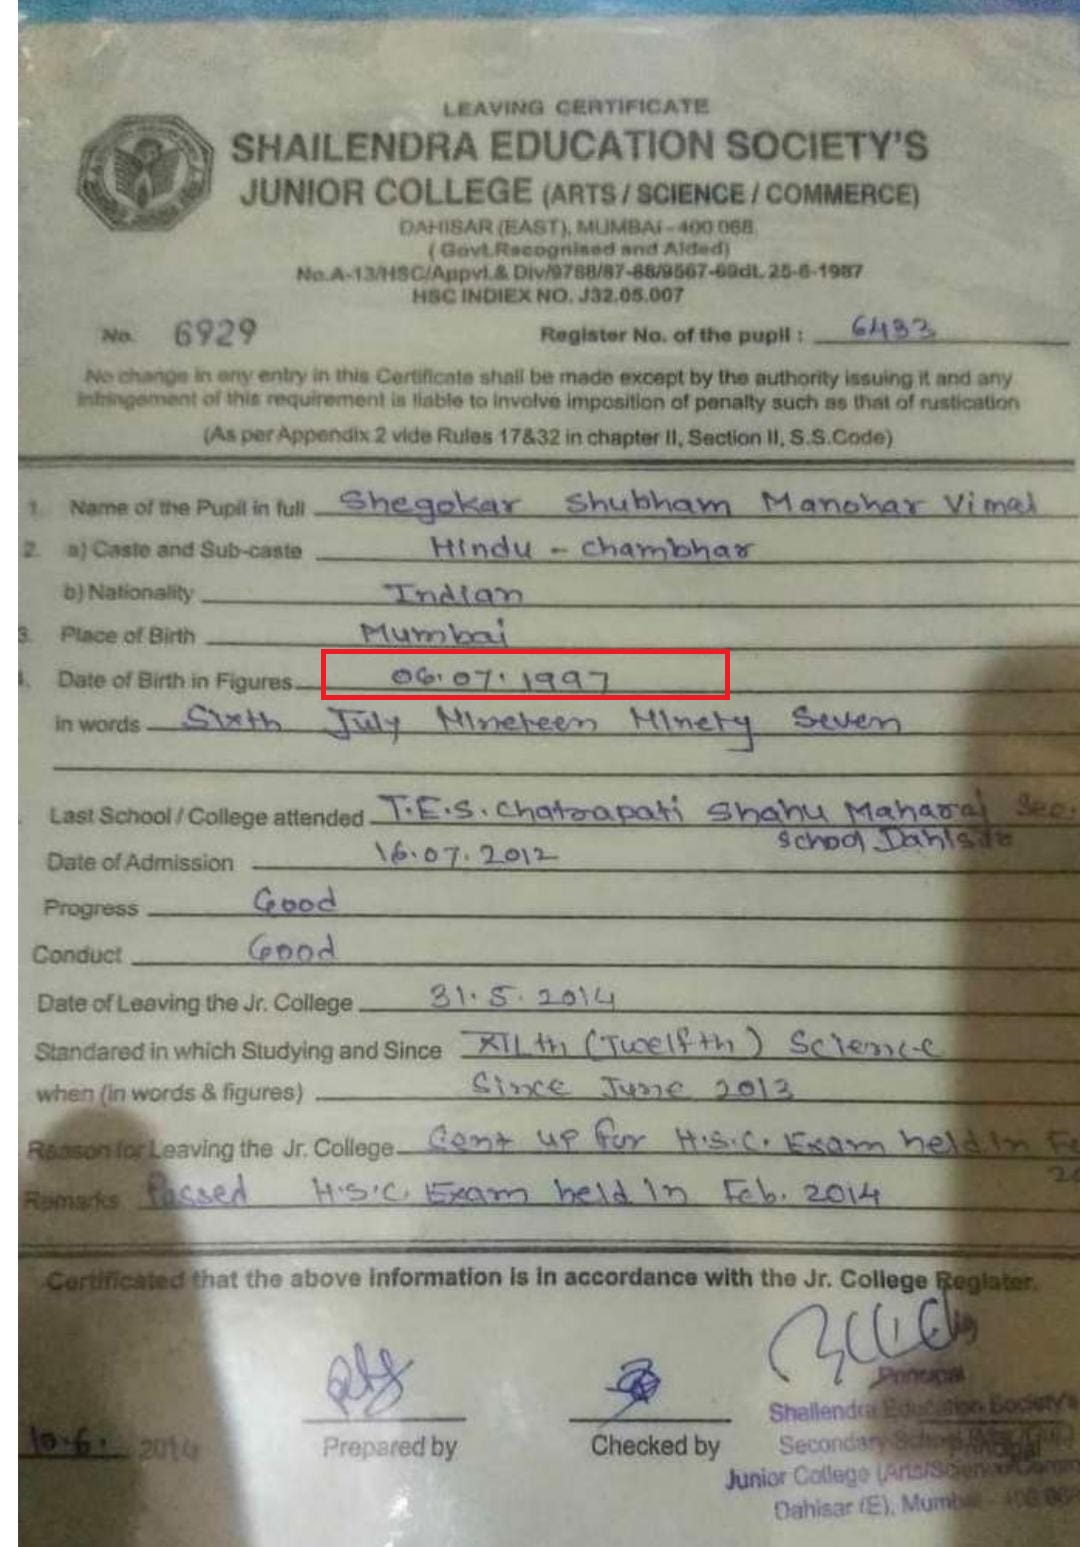 LEAVING CERTIFICATE
SHAILENDRA EDUCATION SOCIETY'S
JUNIOR COLLEGE (ARTS / SCIENCE / COMMERCE)
DAHISAR (EAST), MUMBAI - 400 068.
( Govt.Recognised and Aided)
No.A-13/HSC/Appvl.& Div/9788/87-88/9567-69dt. 25-6-1987
HSC INDIEX NO. J32.05.007
No. 6929 Register No. of the pupil : 6433
No change in any entry in this Certificate shall be made except by the authority issuing it and any
infringement of this requirement is liable to involve imposition of penalty such as that of rustication
(As per Appendix 2 vide Rules 17&32 in chapter II, Section II, S.S.Code)
1. Name of the Pupil in full Shegokar Shubham Manohar Vimal
2. a) Caste and Sub-caste Hindu - Chambhar
b) Nationality Indian
3. Place of Birth Mumbai
4. Date of Birth in Figures 06.07.1997
in words Sixth July Nineteen Ninety Seven
Last School / College attended T.E.S. Chatrapati Shahu Maharaj Sec.
School Dahisar
Date of Admission 16.07.2012
Progress Good
Conduct Good
Date of Leaving the Jr. College 31.5.2014
Standared in which Studying and Since XIIth (Twelfth) Science
when (in words & figures) Since June 2013
Reason for Leaving the Jr. College Sent up for H.S.C. Exam held in
Remarks Passed H.S.C. Exam held in Feb. 2014
Certificated that the above information is in accordance with the Jr. College Register.
Principal
Shailendra Education Society's
10.6. 2014 Prepared by Checked by Secondary School
Principal
Junior College (Arts/Science/Comm
Dahisar (E), Mumbai - 400 068